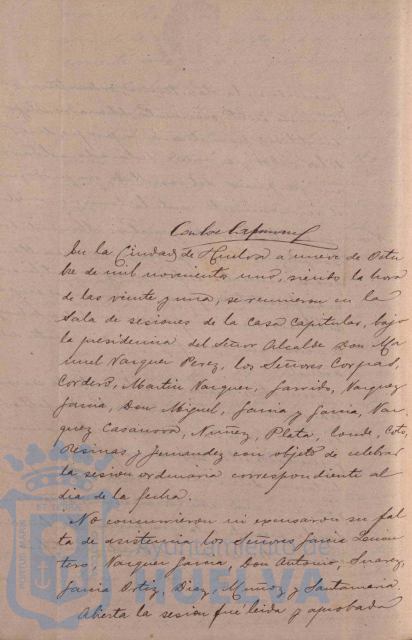 En la Ciudad de Huelva á nueve de Octu
bre de mil novecientos uno, siendo la hora
de las veinte y una, se reunieron en la
Sala de sesiones de la casa Capitular, bajo
la presidencia del Señor Alcalde Don Ma
nuel Vazquez Perez, los Señores Corpas,
Cordero, Martin Vazquez, Garrido, Vazquez
Garcia, Don Miguel, Garcia y Garcia, Vaz
quez Casanova, Nuñez, Plata, Conde, Coto,
Resinas y Fernandez con objeto de celebrar
la sesion ordinaria correspondiente al
dia de la fecha.
No concurrieron ni excusaron su fal
ta de asistencia los Señores Garcia
tero, Vazquez Garcia, Don Antonio, Suarez,
Garcia Ortiz, Diaz, Muñoz y Santamaria
Abierta la sesion fué leida y aprobada
Ayuntamiento de
HUELVA
PORTUS MARIS
ET TERRÆ